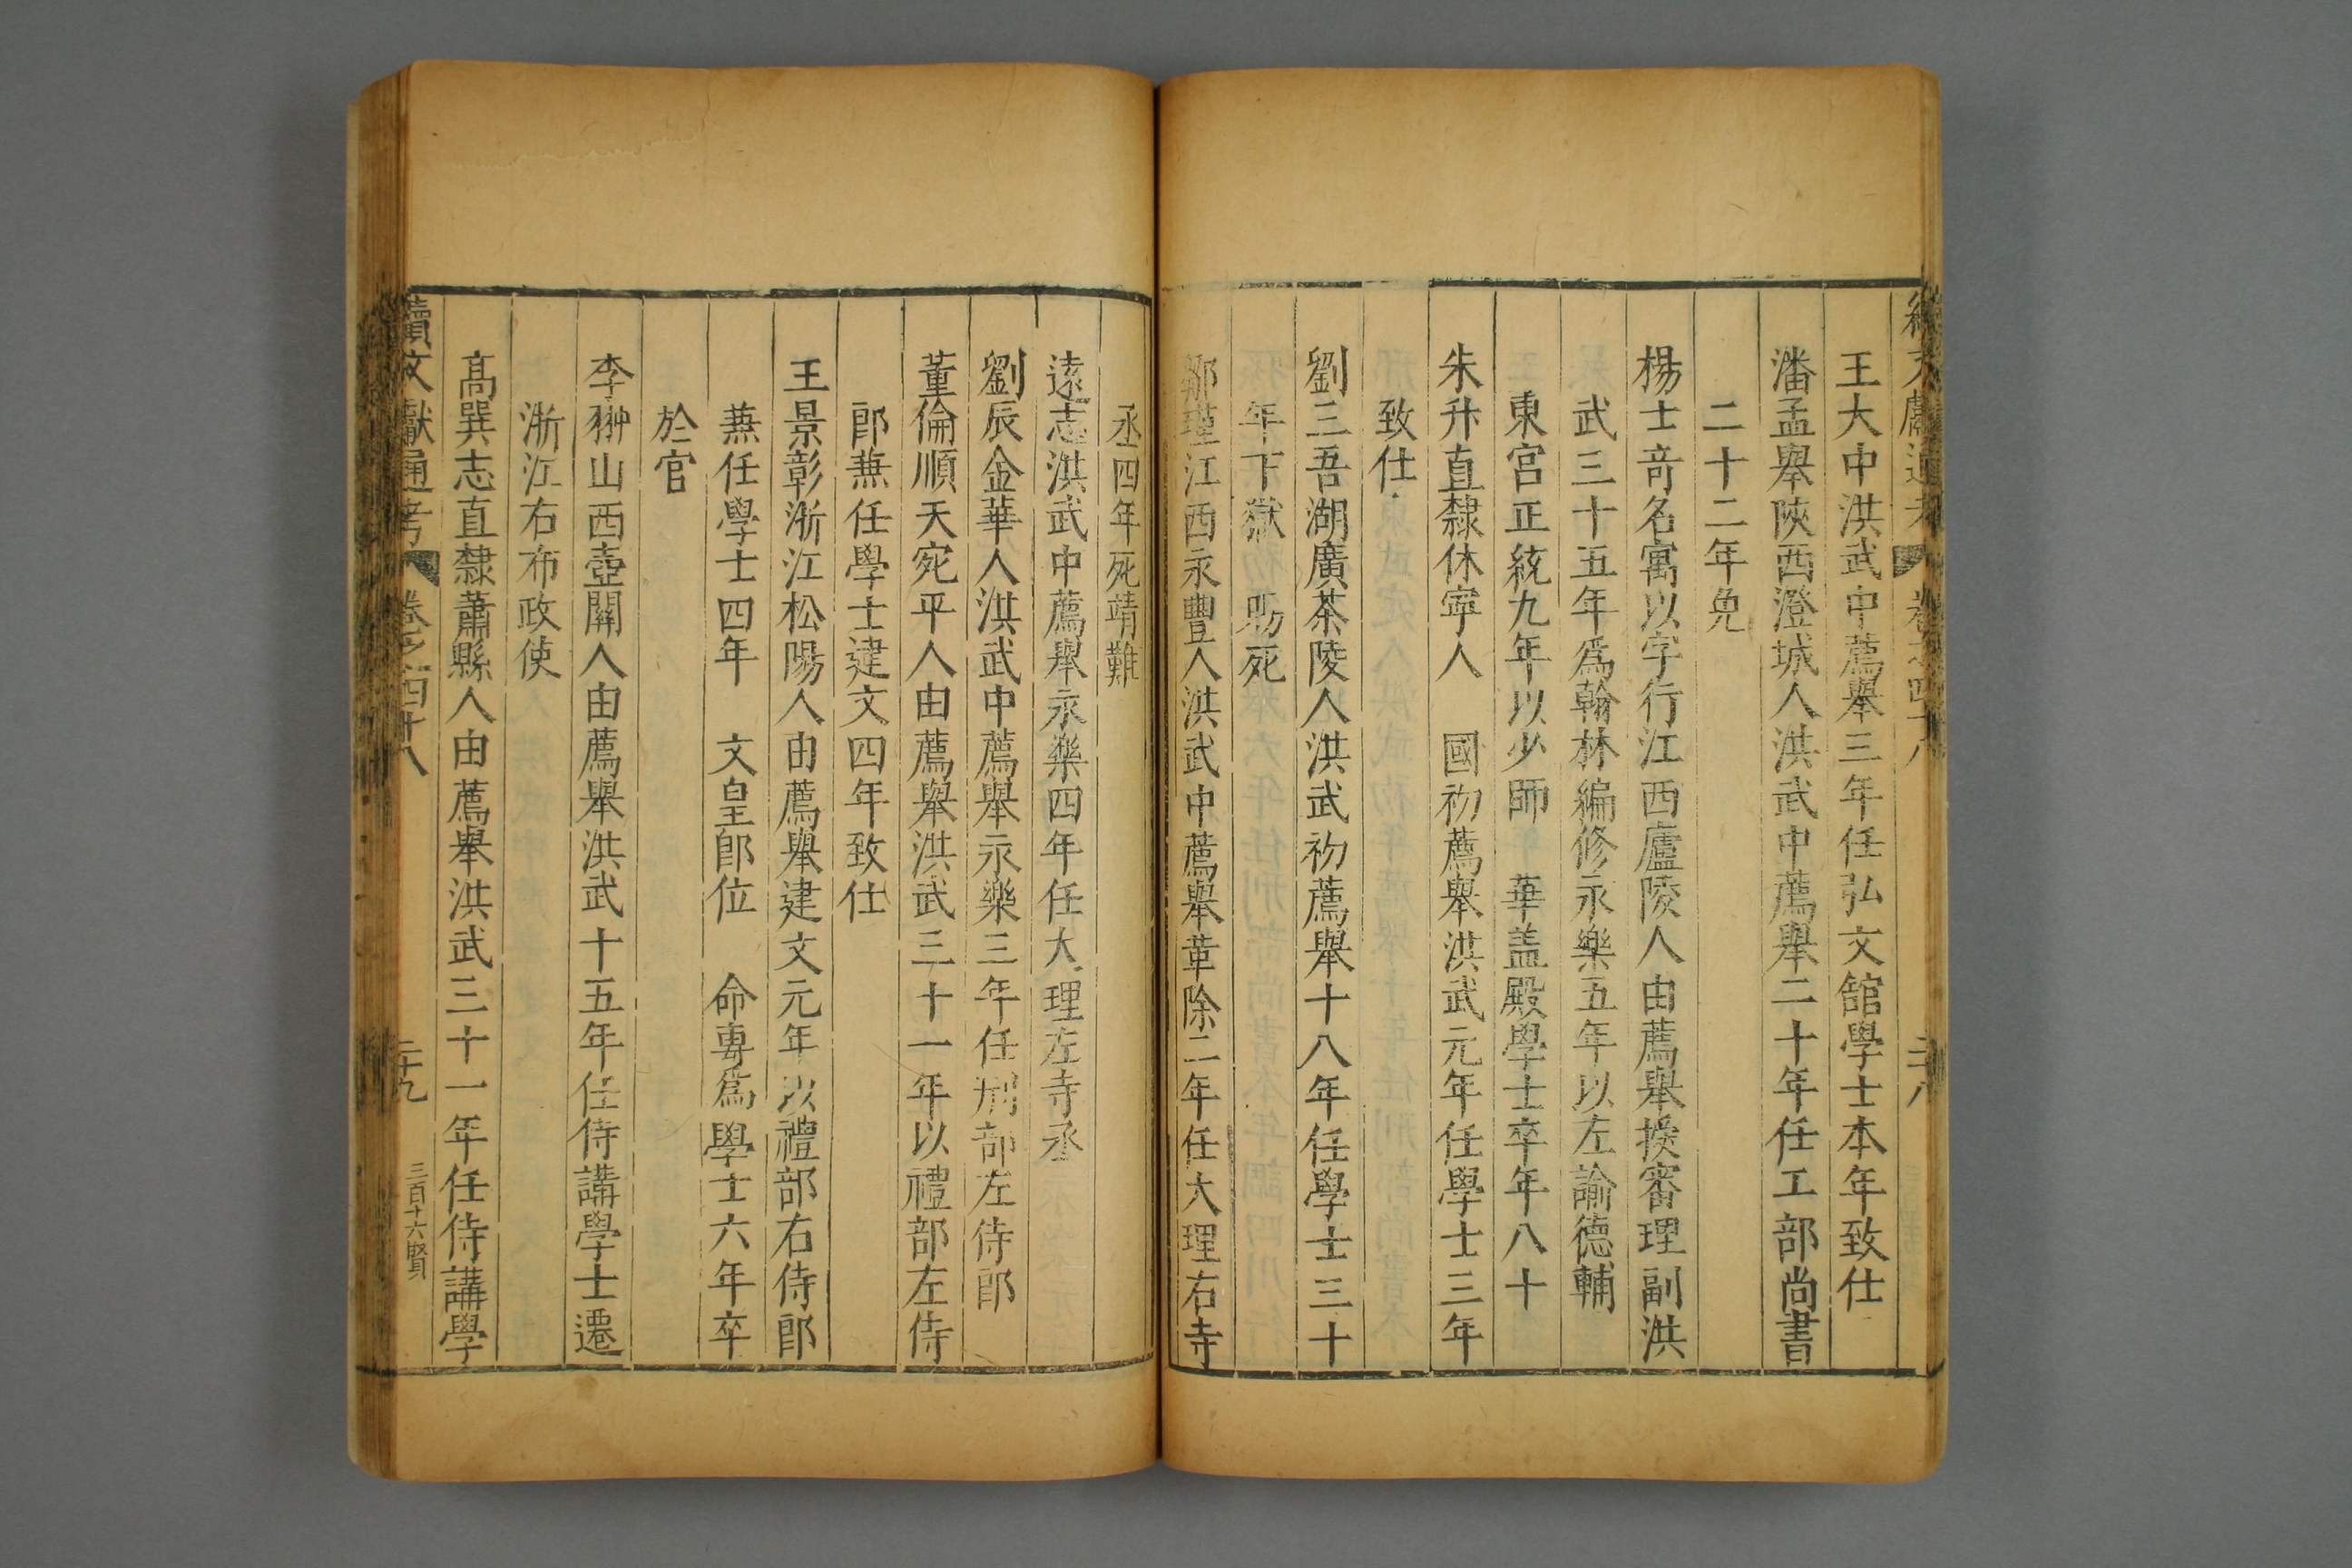 續文獻通考 卷之四十八 三十八
王大中洪武中薦舉三年任弘文館學士本年致仕
潘孟舉陝西澄城人洪武中薦舉二十年任工部尚書
二十二年免
楊士竒名寓以字行江西廬陵人由薦舉授審理副洪
武三十五年爲翰林編修永樂五年以左諭德輔
東宮正統九年以少師 華盖殿學士卒年八十
朱升直隸休寧人 國初薦舉洪武元年任學士三年
致仕
劉三吾湖廣茶陵人洪武初薦舉十八年任學士三十
年下獄 賜死
鄒瑾江西永豐人洪武中薦舉革除二年任大理右寺
丞四年死靖難
遠志洪武中薦舉永樂四年任大理左寺丞
劉辰金華人洪武中薦舉永樂三年任刑部左侍郎
董倫順天宛平人由薦舉洪武三十一年以禮部左侍
郎蕪任學士建文四年致仕
王景彰浙江松陽人由薦舉建文元年以禮部右侍郎
蕪任學士四年 文皇郎位 命專爲學士六年卒
於官
李翀山西壺關人由薦舉洪武十五年任侍講學士遷
浙江右布政使
高巽志直隸蕭縣人由薦舉洪武三十一年任侍講學
續文獻通考 卷之四十八 三十九 三百十六賢